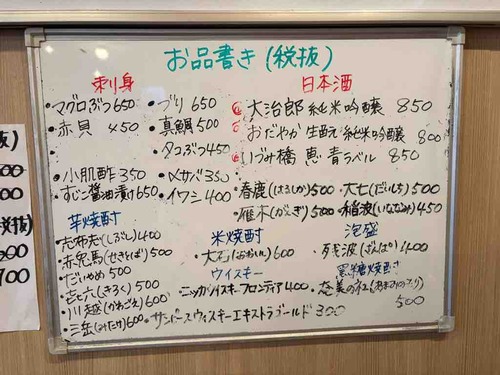 お品書き(税抜)
刺身
・マグロぶつ 650
・赤貝 450
・小肌酢 350
・すじこ醤油漬け 650
・ブリ 650
・真鯛 500
・タコぶつ 450
・〆サバ 350
・イワシ 400
日本酒
大治郎 純米吟醸 850
おだやか 生酛 純米吟醸 800
いづみ橋 恵 青ラベル 850
・春鹿(はるしか) 500
・大七(だいしち) 500
・雁木(がんぎ) 500
・稲波(いななみ) 450
芋焼酎
(しるべし) 400
・赤兎馬(せきとば) 500
・だいやめ 500
・㐂六(きろく) 500
・川越(かわごえ) 600
・三岳(みたけ) 600
米焼酎
・大石(おおいし) 600
ウイスキー
・ニッカウイスキーフロンティア 400
・サントリーウイスキーエキストラゴールド 300
泡盛
・残波(ざんぱ) 400
黒糖焼酎
・奄美の杜(あまみのもり)
500
抜)
700